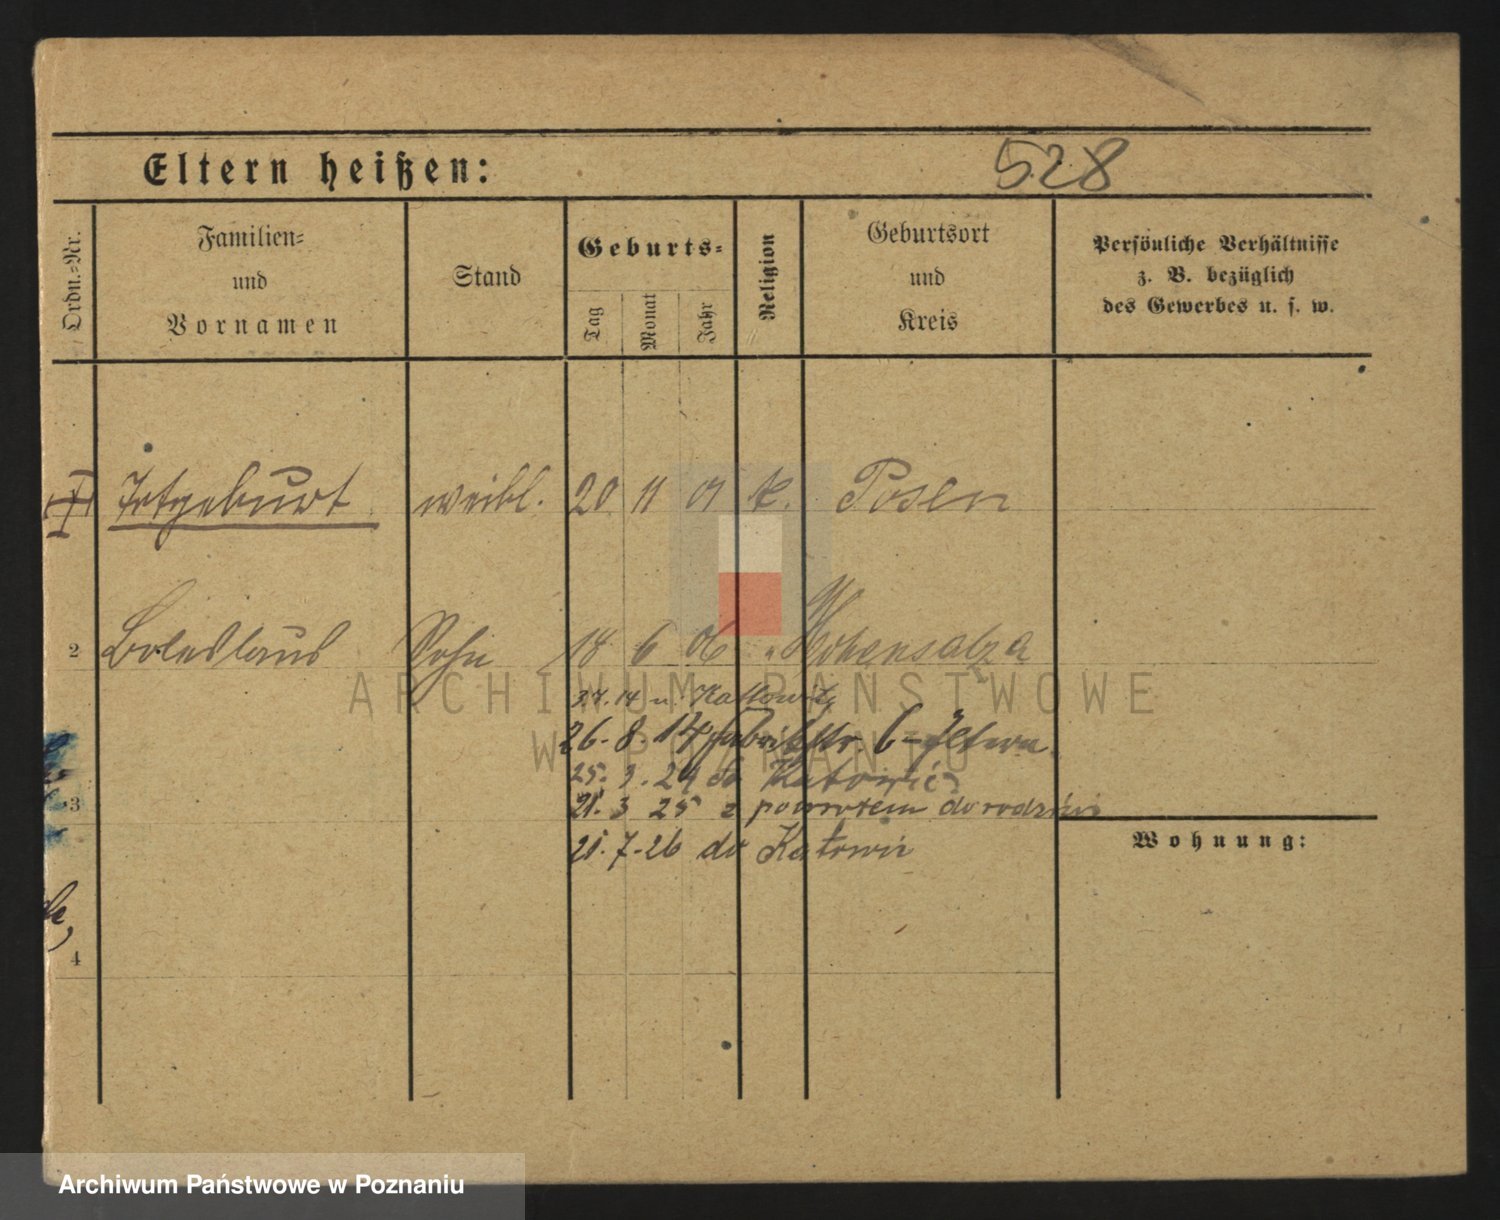 Eltern heißen:
528
Ordn.-Nr.
Familien-
und
Vornamen
Stand
Geburts-
Tag
Monat
Jahr
Religion
Geburtsort
und
Kreis
Persönliche Verhältnisse
z. B. bezüglich
des Gewerbes u. s. w.
Totgeburt weibl. 20 11 01 k. Posen
2 Boleslaus Sohn 18 6 06 " Hohensalza
ARCHIWUM PAŃSTWOWE
14 n. Kattowitz
26.8.14 Fabrikstr. 6 - Eltern
W POZNANIU
25. 3. 24 do Katowic
3 21. 3 25 z powrotem do rodziców
Wohnung:
21. 7. 26 do Katowic
4
Archiwum Państwowe w Poznaniu